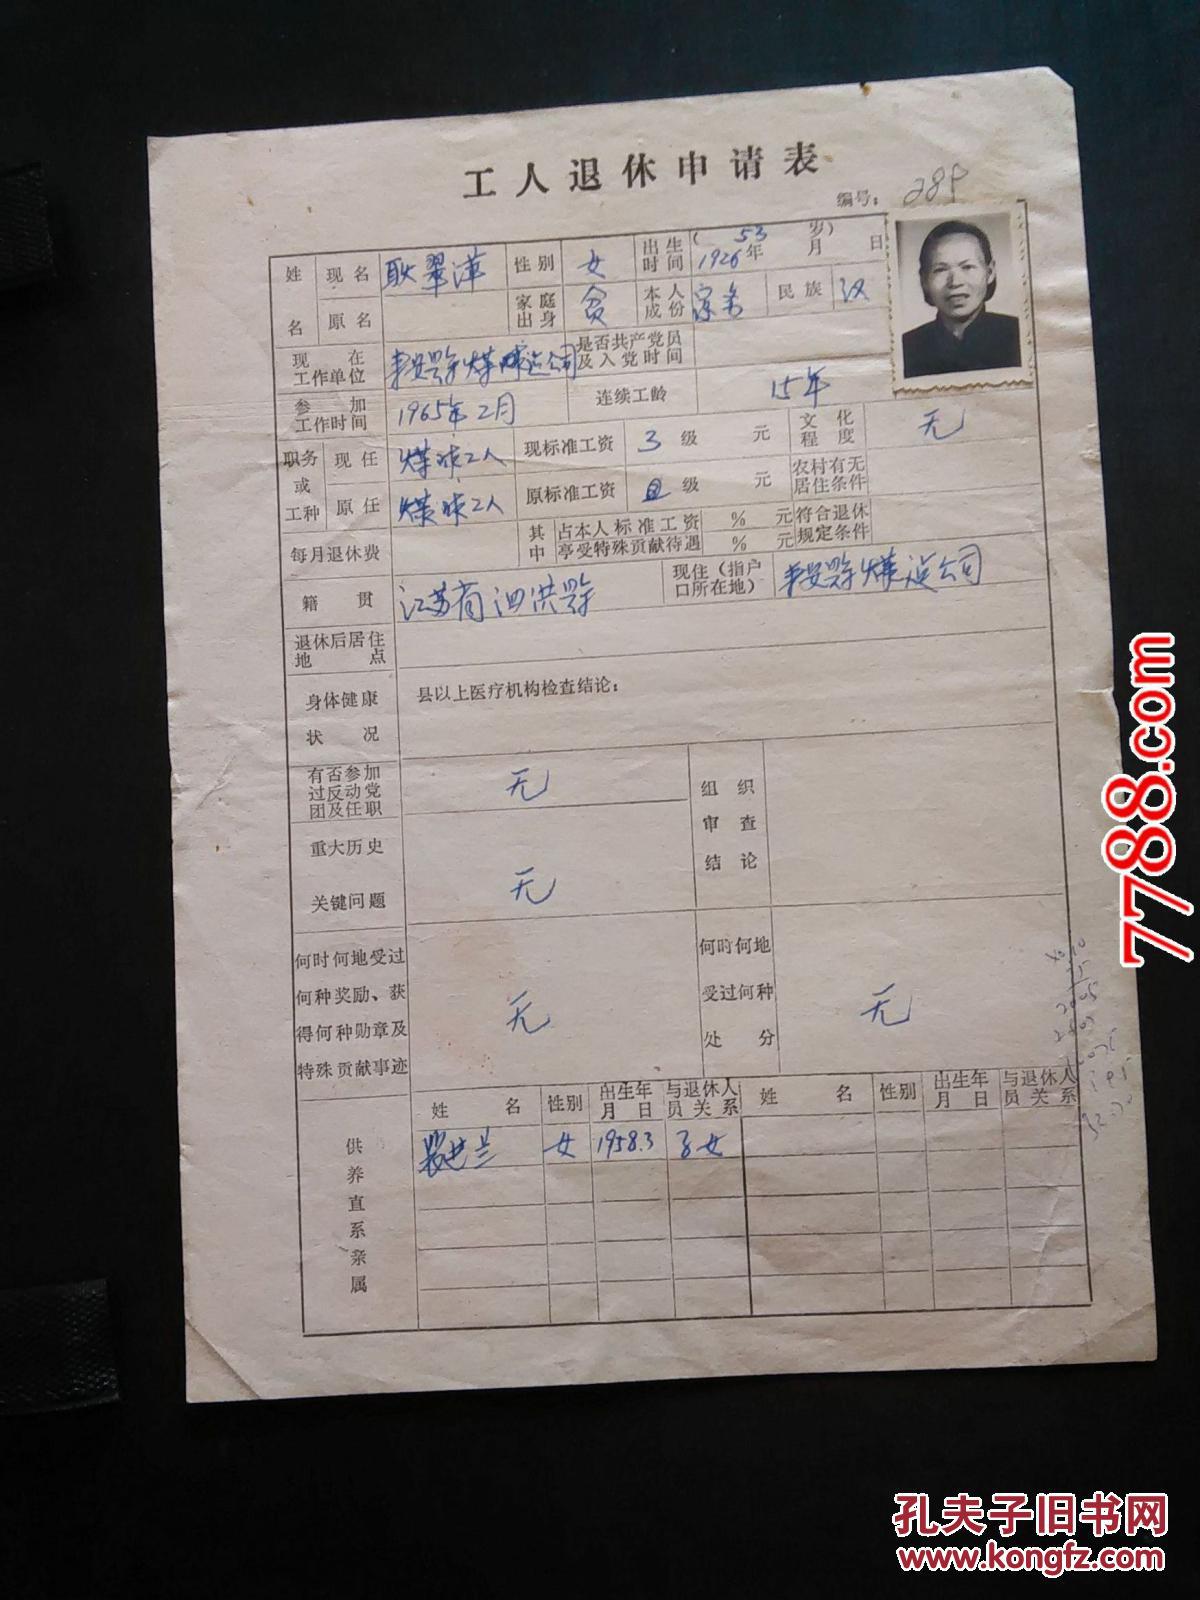 工人退休申请表
编号：289
姓名 现名 耿翠萍 性别 女 出生时间 (53岁) 1926年 月 日
原名 家庭出身 贫 本人成份 家务 民族 汉
现在工作单位 煤球运公司 是否共产党员及入党时间
参加工作时间 1965年2月 连续工龄 15年
职务或工种 现任 煤球工人 现标准工资 3级 元 文化程度 无
原任 煤球工人 原标准工资 级 元 农村有无居住条件
每月退休费 其中 占本人标准工资 % 元 符合退休规定条件
享受特殊贡献待遇 % 元
籍贯 江苏省泗洪县 现住（指户口所在地） 煤运公司
退休后居住地点
身体健康状况 县以上医疗机构检查结论：
有否参加过反动党团及任职 无 组织审查结论
重大历史关键问题 无
何时何地受过何种奖励、获得何种勋章及特殊贡献事迹 无 何时何地受过何种处分 无
供养直系亲属 姓名 性别 出生年月日 与退休人员关系 姓名 性别 出生年月日 与退休人员关系
女 1958.3 子女
7788.com
孔夫子旧书网
www.kongfz.com